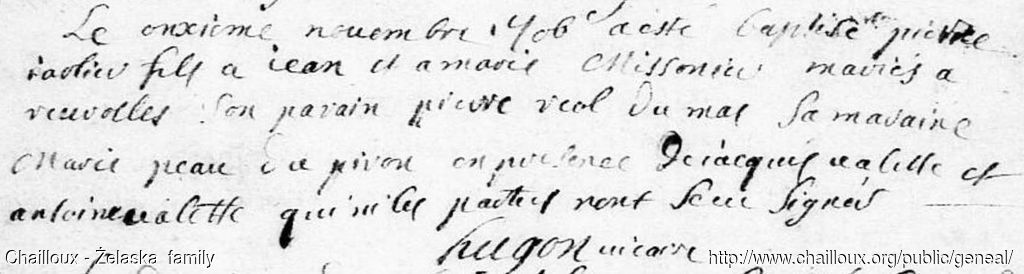 Le onxieme novembre 1706 a esté baptise pierre
fils a jean et a marie Missonier mariés a
reuvolles Son parain pierre reol Du mas Sa maraine
Marie peau du piron en presence De jacques valette et
antoine valette qui ni les parties nont Sceu Signer
hugon vicaire
Chailloux - Żelaska family
http://www.chailloux.org/public/geneal/